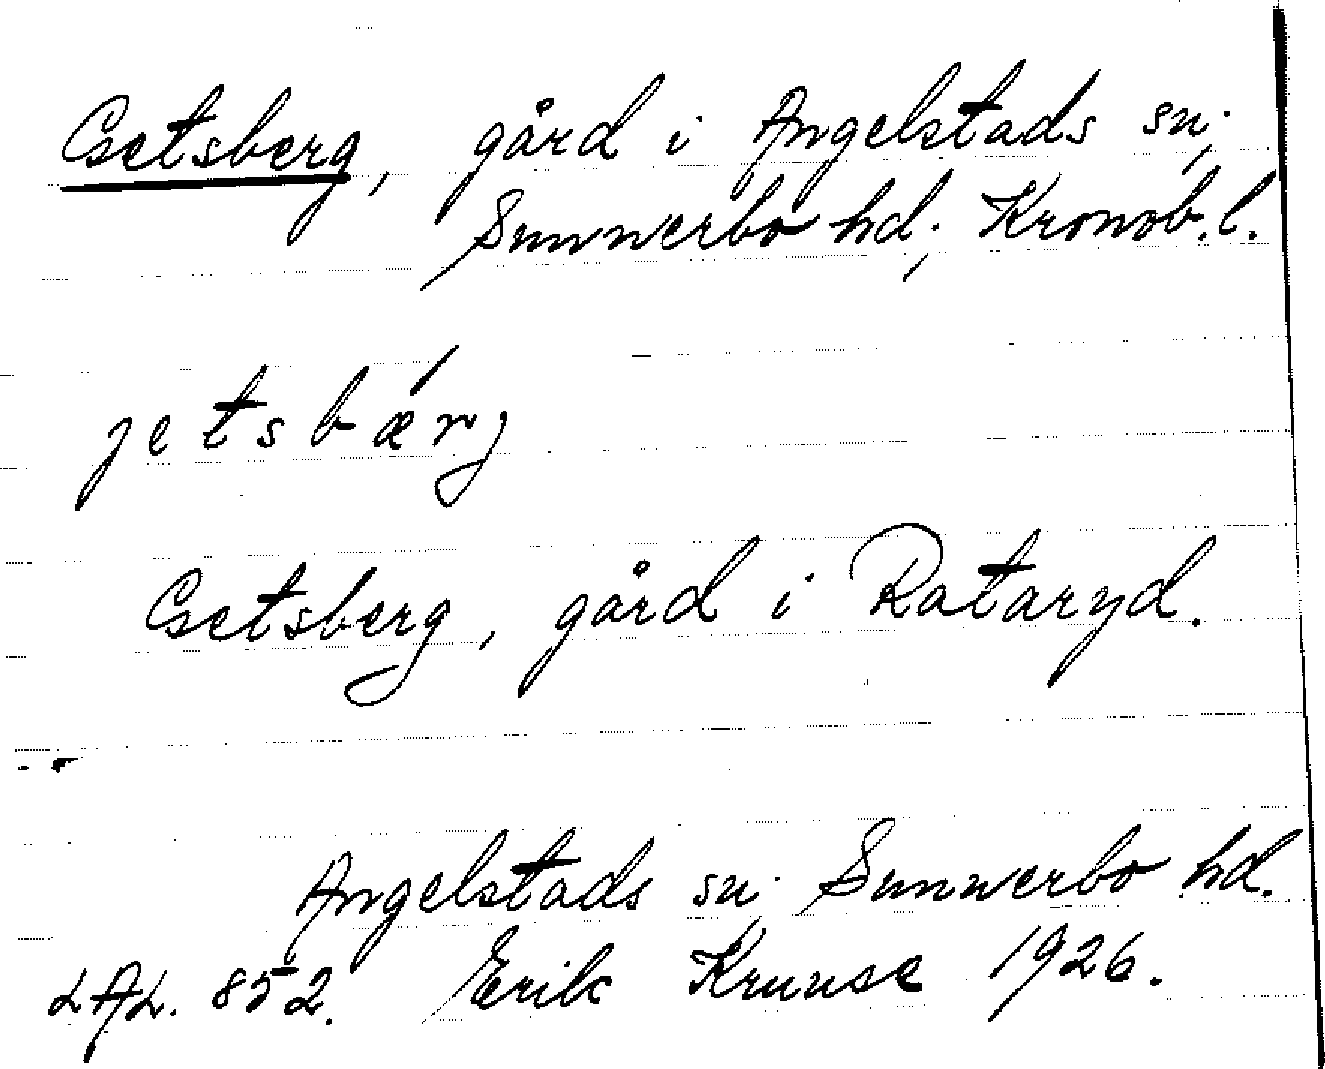 Getsberg, gård i Angelstads sn;
Sunnerbo hd; Kronob. l.
jetsbǽrj
Getsberg, gård i Rataryd.
Angelstads sn; Sunnerbo hd.
LAL. 852. Erik Kruuse 1926.